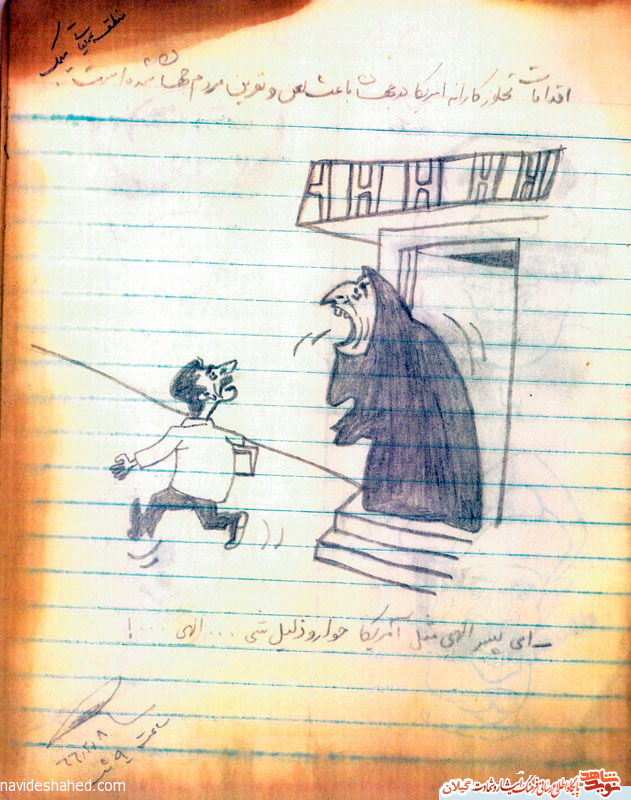 منطقه عملیات
اقدامات تجاوزکارانه آمریکا در جهان باعث لعن و نفرین مردم جهان شده است.
– ای پسر الهی مثل آمریکا خوار و ذلیل شی .... الهی ....!
ساعت ۹ شب
۶۶،۲،۸
navideshahed.com
نوید شاهد
پایگاه اطلاع رسانی فرهنگ ایثار و شهادت گیلان